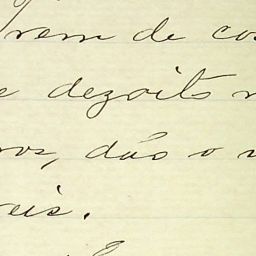 rem de co
e dezoito
ros, dão o
reis.